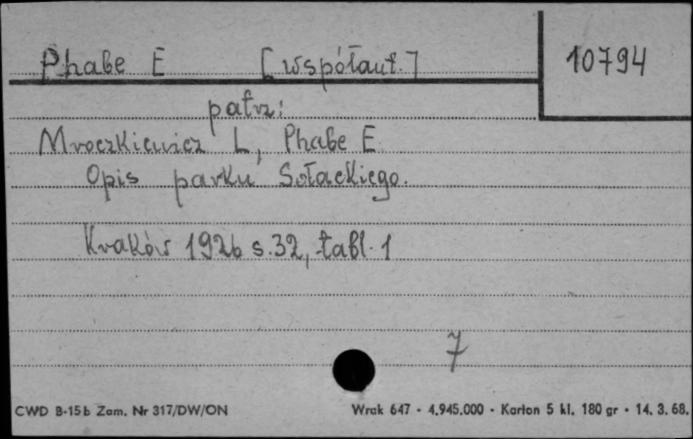 Phabe E [współaut.] 10794
patrz:
Mroczkiewicz L, Phabe E.
Opis parku Sołackiego.
Kraków 1926 s. 32, tabl. 1
7
CWD B-15b Zam. Nr 317/DW/ON Wrak 647 - 4.945.000 - Karton 5 kl. 180 gr - 14. 3. 68.